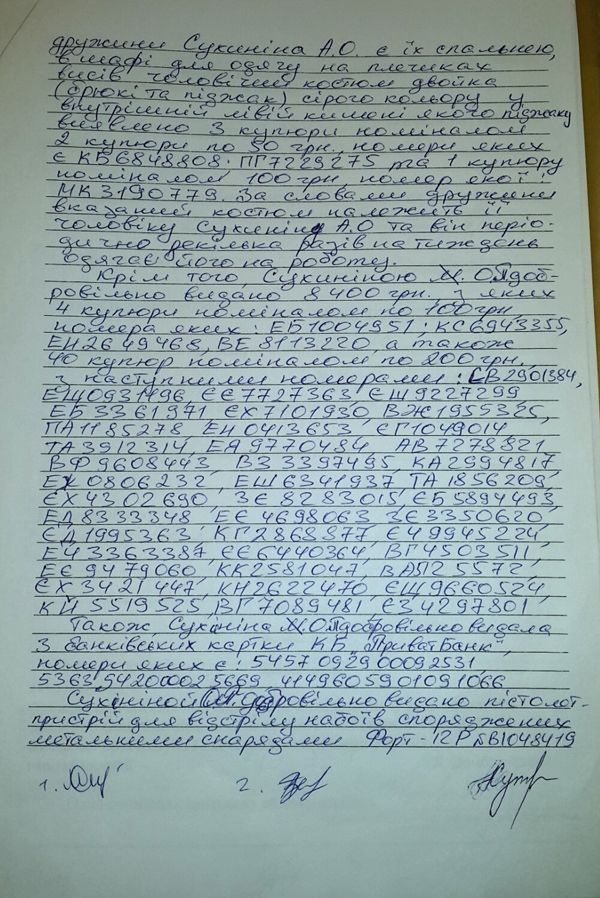 дружини Сухиніна А.О. є їх спальнею,
в шафі для одягу на плечиках
висів чоловічий костюм двойка
(брюкі та піджак) сірого кольору у
внутрішній лівій кишені якого піджаку
виявлено 3 купюри номіналом
2 купюри по 50 грн. номери яких
є КБ6848808. ПГ7229275 та 1 купюру
номіналом 100 грн номер якої:
МК3190779. За словами дружини
вказаний костюм належить її
чоловіку Сухиніну А.О та він періо-
дично декілька разів на тиждень
одягає його на роботу.
Крім того, Сухиніною добр-
ровільно видано 8400 грн. з яких
4 купюри номіналом по 100 грн,
номера яких: ЕБ1004951; КС6943355,
ЕН2649468, ВЕ8113220, а також
40 купюр номіналом по 200 грн.
з наступними номерами: СВ2901384,
ЕЩ0931496 ЄЄ7727363 ЄЩ9227299
ЕБ3361971 ЄХ7101930 ВЖ1955325,
ПА1185278 ЕН0413653 ЄГ1049014
ТА3912314, ЕА9770484 АВ7278821
ВФ9608443 ВЗ3397495, КА2994817,
ЕЖ0806232, ЕШ6341937 ТА1856209,
ЄХ4302690 ЗЄ8283015, ЄБ5894493,
ЕД8333348 ЕЄ4698063 ЗЄ3350620,
ЄД1995363, КГ2868877 ЄЧ9945224,
ЕЧ3363387 ЄЄ6440364, ВГ4503511,
ЕЄ9479060, КК2581047, 5572,
ЄХ3421447, КН2622470, ЄЩ9660524,
КЙ5519525, ВГ7089481, ЄЗ4297801
Також, Сухініна добровільно видала
3 банківських картки КБ "ПриватБанк",
номери яких є: 5457092900092531
5362542000025669 4149605901091066
Сухініной добровільно видано пістолет-
пристрій для відстрілу набоїв споряджених
метальними снарядами Форт-12Р 1048419
1. 2.